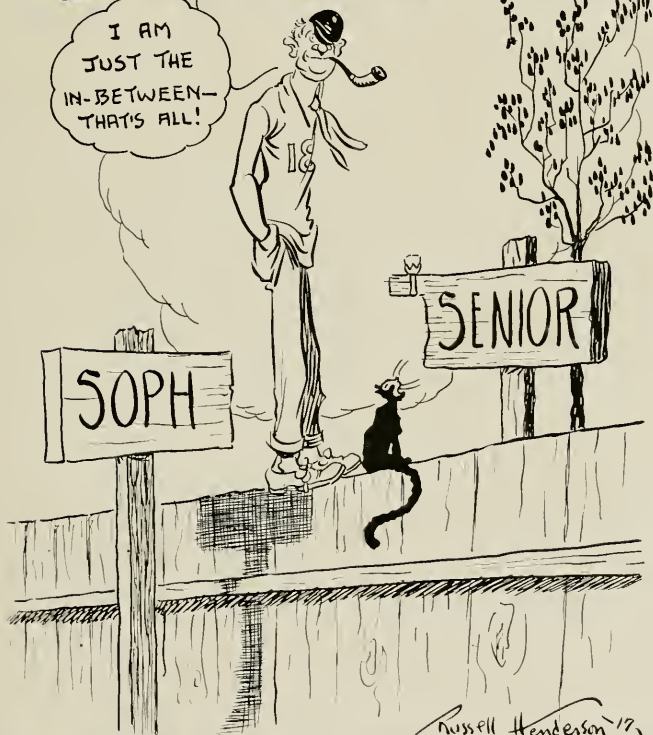 I AM
JUST THE
IN-BETWEEN—
THAT'S ALL!
18
SENIOR
SOPH
Russell Henderson '17